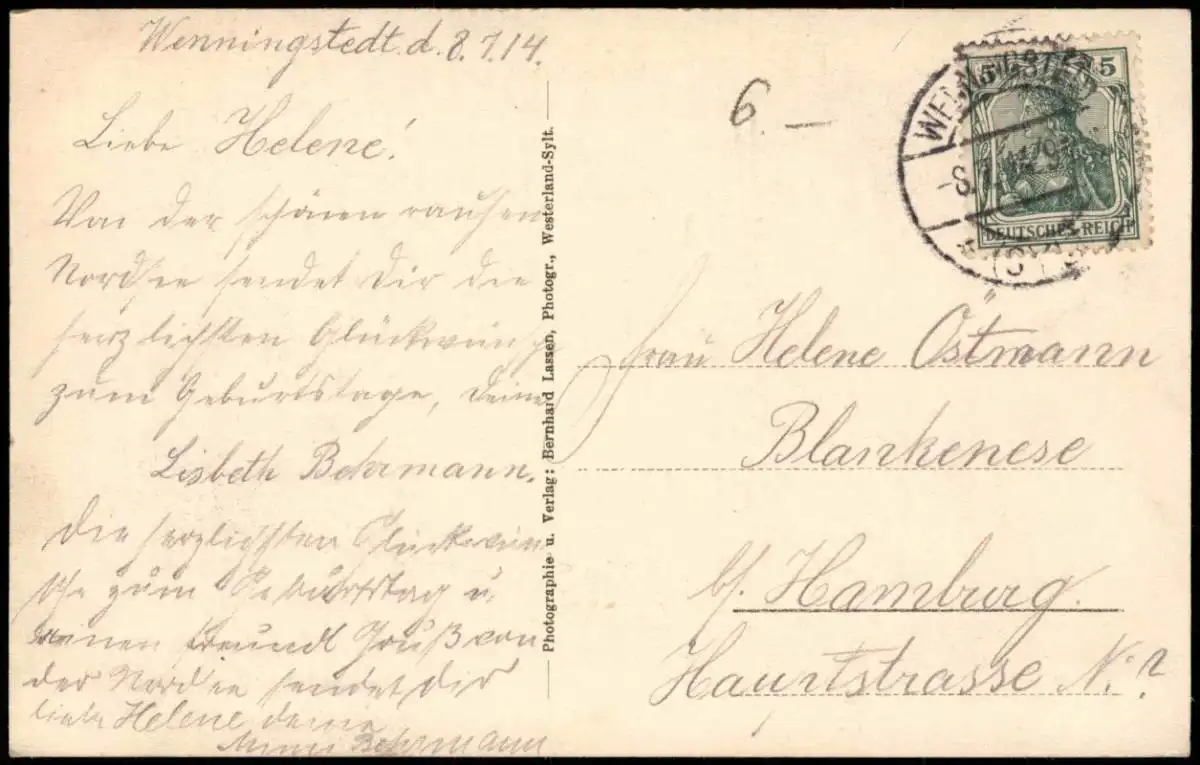 Wenningstedt d. 8.7.14.
Liebe Helene!
Von der schönen rauhen
Nordsee sendet Dir die
herzlichsten Glückwünsche
zum Geburtstage, Deine
Lisbeth Behrmann.
Die herzlichsten Glückwün-
sche zum Geburtstag u.
einen freundl Gruß von
der Nordsee sendet Dir
liebe Helene deine
Behrmann
Photographie u. Verlag: Bernhard Lassen, Photogr., Westerland-Sylt.
6. —
5 5
DEUTSCHES REICH
WENNINGSTEDT
-8.7.14
(SYLT)
Frau Helene Östmann
Blankenese
b/. Hamburg.
Hauptstrasse N: ?